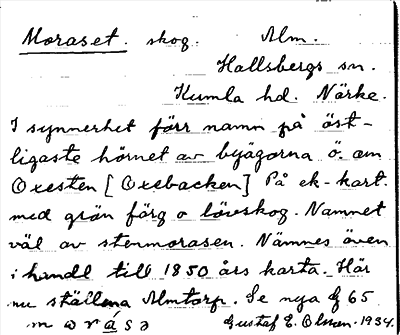 Moraset. skog. Alm.
Hallsbergs sn.
Kumla hd. Närke.
I synnerhet förr namn på öst-
ligaste hörnet av byägorna ö. om
Oxesten [Oxebacken] På ek-kart.
med grön färg o lövskog. Namnet
väl av stenmorasen. Nämnes även
i handl till 1850 års karta. Här
nu ställena Almtorp. Se nya G 65
m o r á s a Gustaf E. Olsson. 1934.